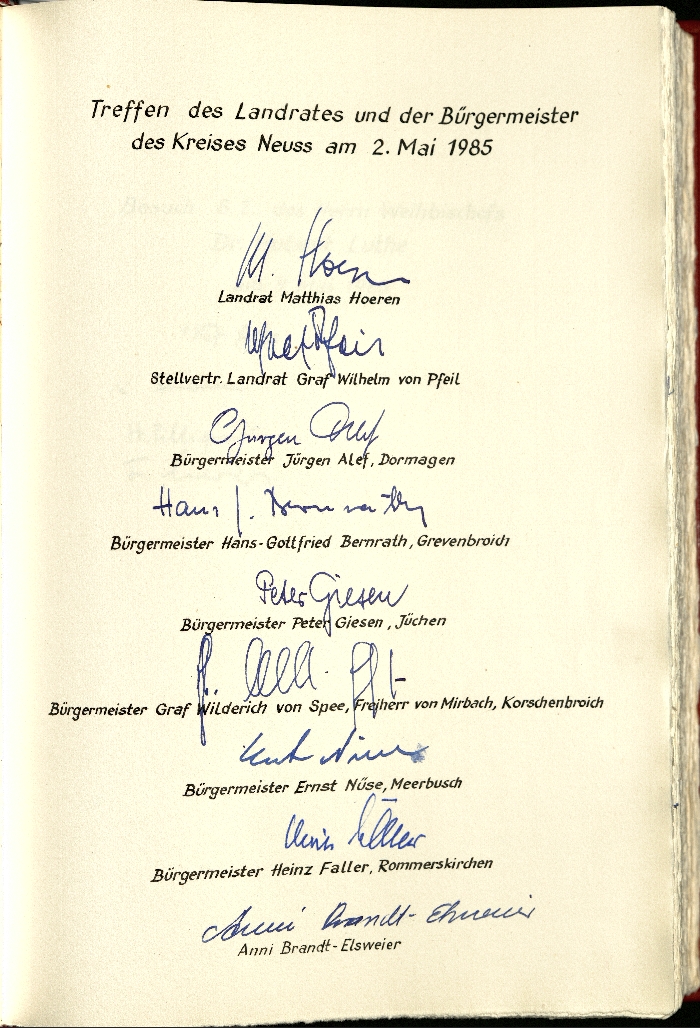 Treffen des Landrates und der Bürgermeister
des Kreises Neuss am 2. Mai 1985
M. Hoeren
Landrat Matthias Hoeren
Stellvertr. Landrat Graf Wilhelm von Pfeil
Jürgen Alef
Bürgermeister Jürgen Alef, Dormagen
Hans J. Bernrath
Bürgermeister Hans-Gottfried Bernrath, Grevenbroich
Peter Giesen
Bürgermeister Peter Giesen, Jüchen
Bürgermeister Graf Wilderich von Spee, Freiherr von Mirbach, Korschenbroich
Bürgermeister Ernst Nüse, Meerbusch
Bürgermeister Heinz Faller, Rommerskirchen
Anni Brandt-Elsweier
Anni Brandt-Elsweier